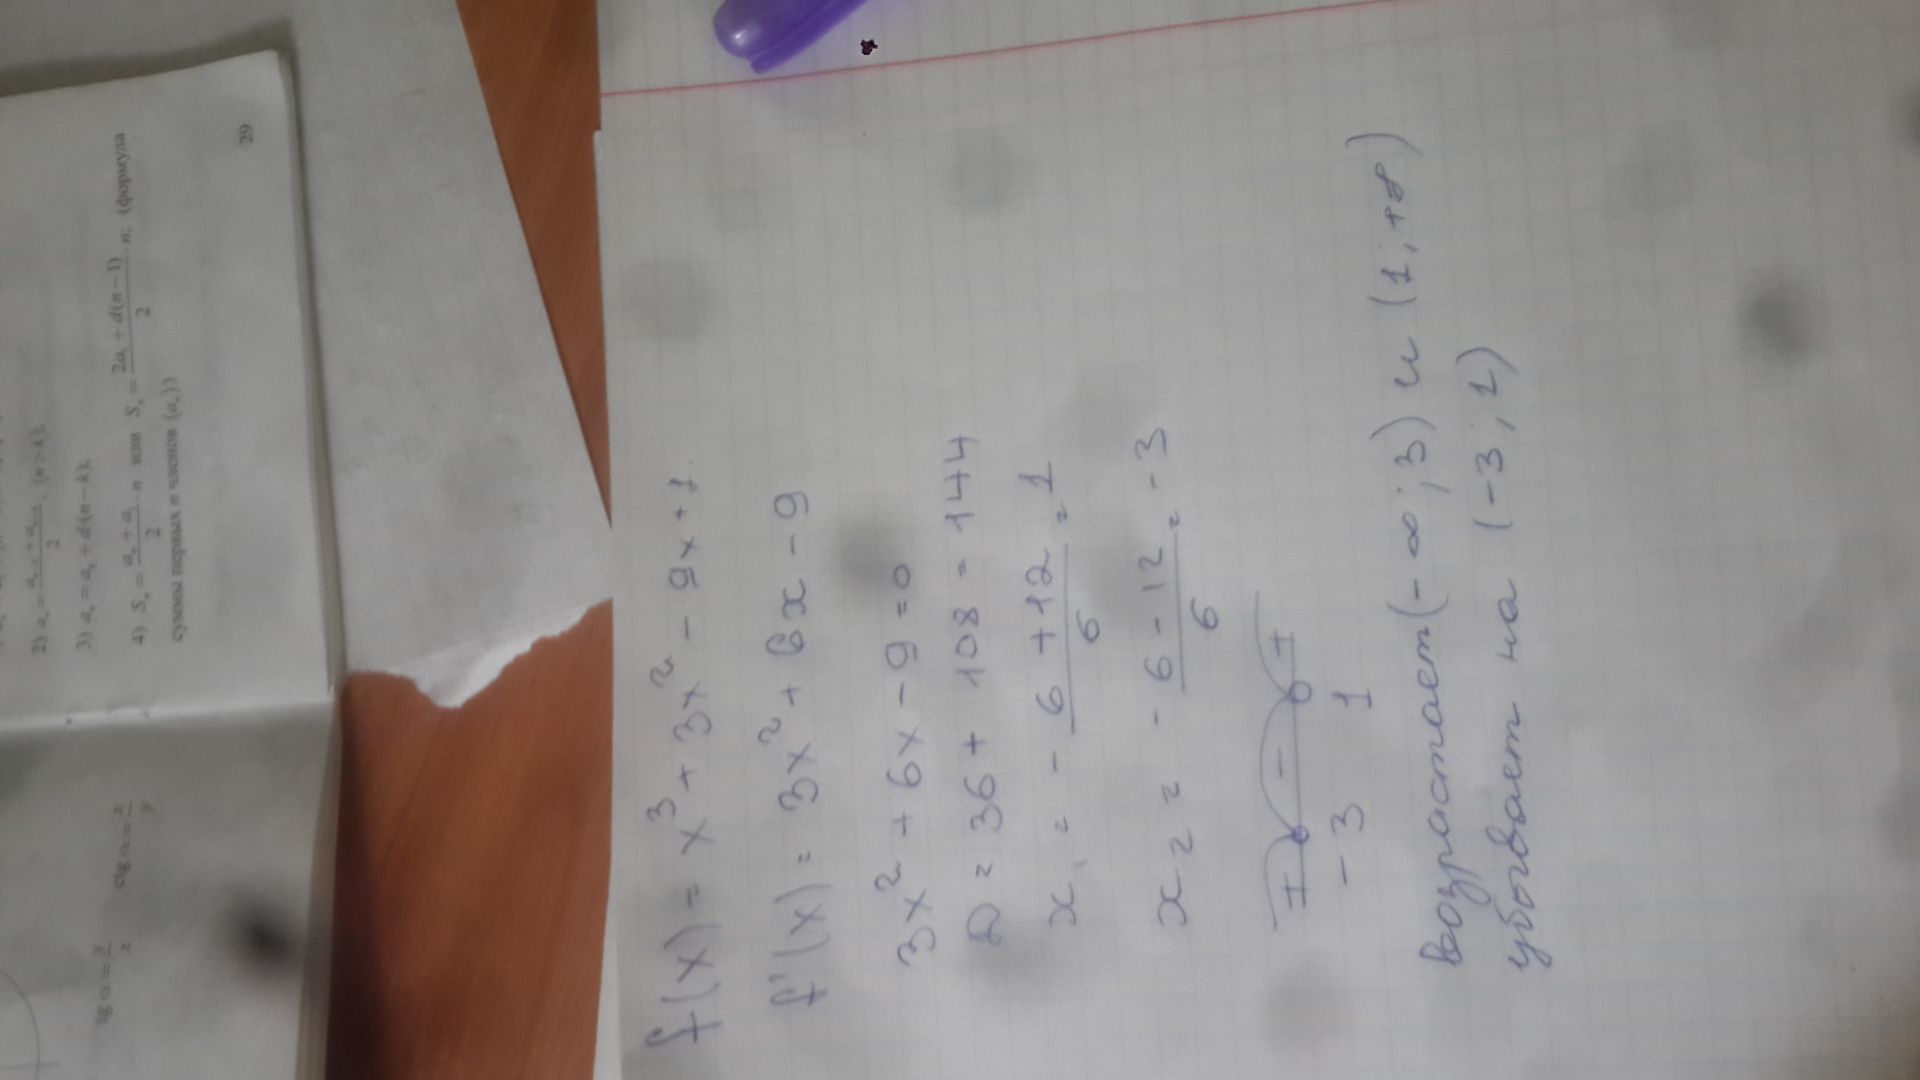 2) aₙ = (aₙ₋ₖ + aₙ₊ₖ)/2, (n > k);
3) aₙ = aₖ + d(n − k);
4) Sₙ = (a₁ + aₙ)/2 · n или Sₙ = (2a₁ + d(n − 1))/2 · n; (формула
суммы первых n членов (aₙ))
29
tg α = y/x ctg α = x/y
f(x) = x³ + 3x² − 9x + 1
f'(x) = 3x² + 6x − 9
3x² + 6x − 9 = 0
D = 36 + 108 = 144
x₁ = - 6 + 12 / 6 = 1
x₂ = - 6 − 12 / 6 = -3
+ − +
-3 1
возрастает (-∞; 3) и (1, +∞)
убывает на (-3; 1)